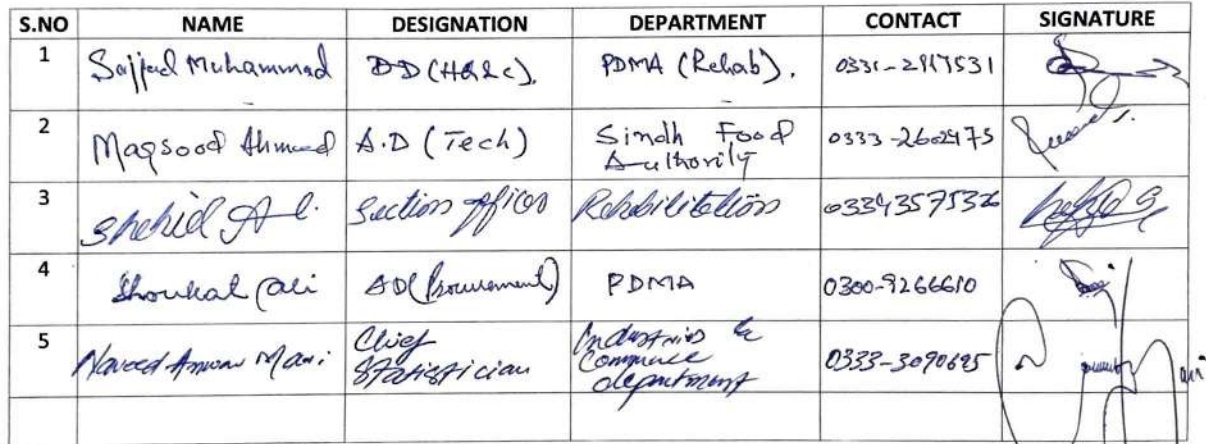 S.NO NAME DESIGNATION DEPARTMENT CONTACT SIGNATURE
1 Sajjad Muhammad DD (HR&C). PDMA (Rehab).
2 Maqsood Ahmed A.D (Tech) Sindh Food
Authority
3 Shahid Ali Section officer Rehabilitation
4 Shoukat Ali AD (Procurement) PDMA 0300-9266610
5 Naveed Anwar Chief
Statistician
Industries &
Commerce
department
0333-3090695